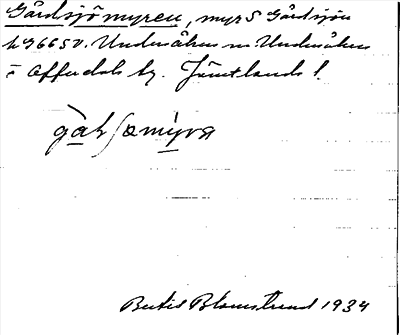 Gårdsjömyren, myr S Gårdsjön
h 966 SV. Undersåker sn Undersåkers
o Offerdals tg. Jämtlands l.
Bertil Blomstrand 1934